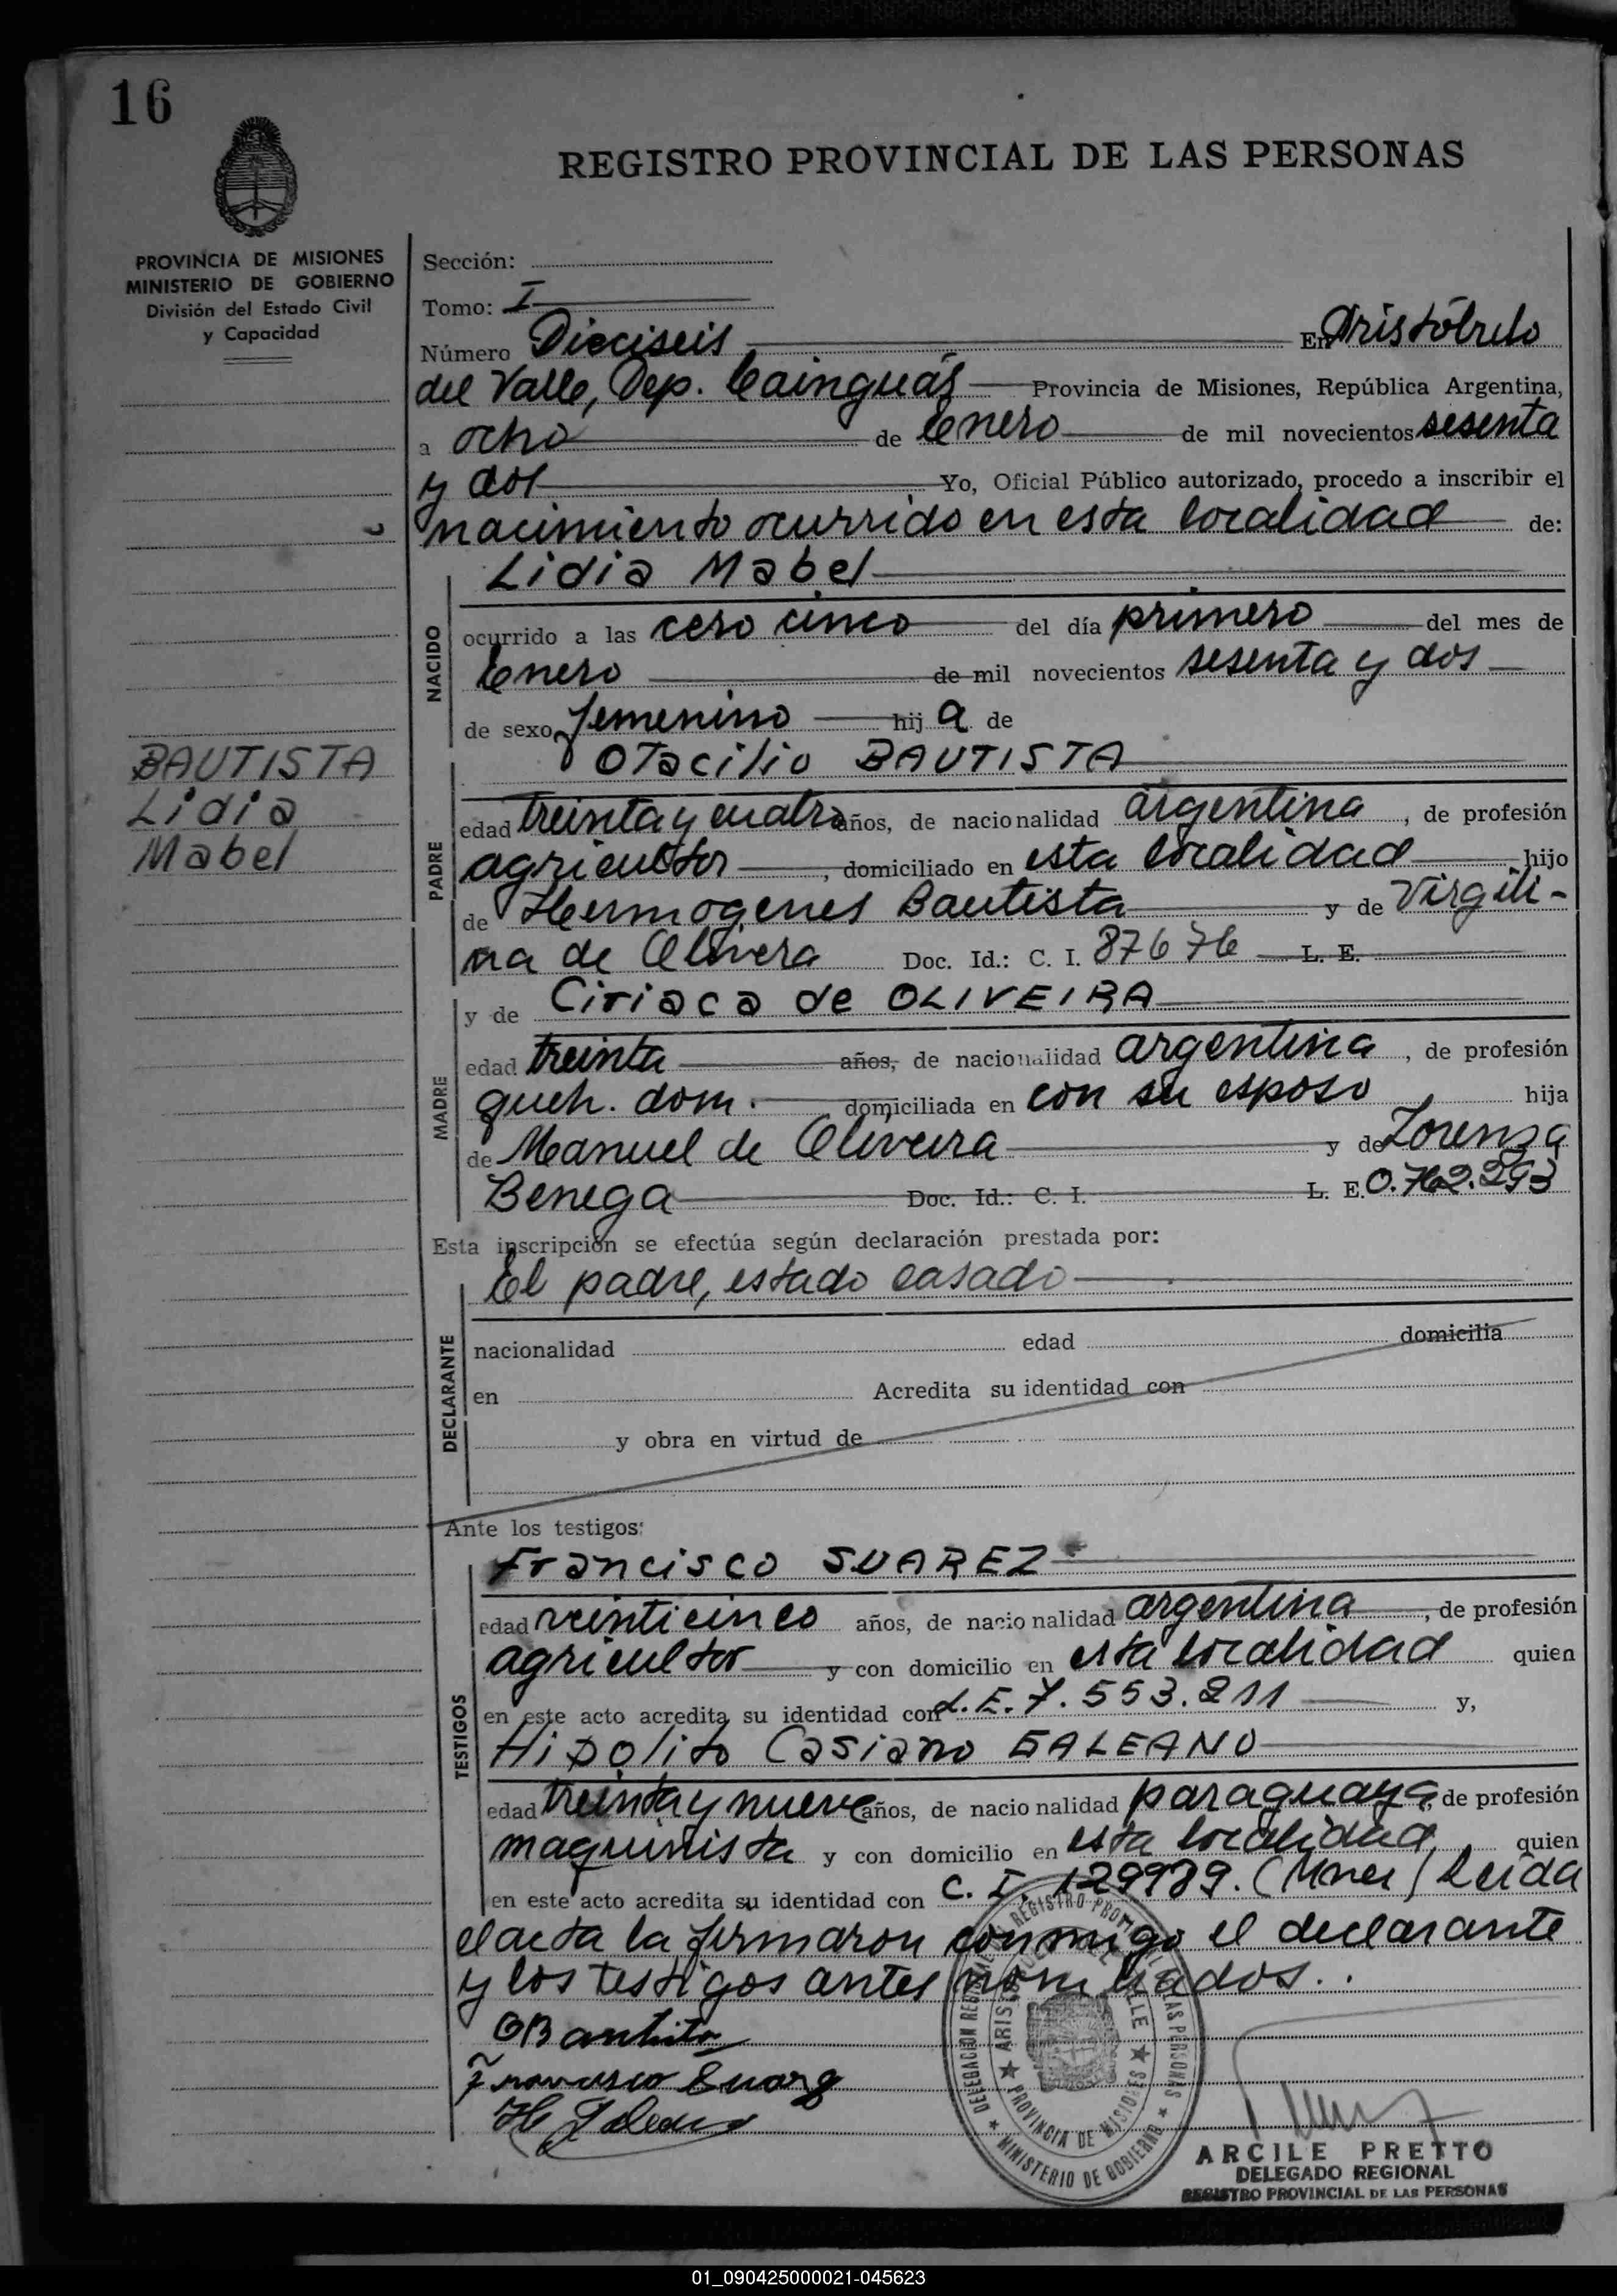 16
REGISTRO PROVINCIAL DE LAS PERSONAS
PROVINCIA DE MISIONES
MINISTERIO DE GOBIERNO
División del Estado Civil
y Capacidad
Sección:
Tomo: I
Número Dieciseis En Aristóbulo
del Valle, Dep. Cainguás Provincia de Misiones, República Argentina,
a ocho de Enero de mil novecientos sesenta
y dos Yo, Oficial Público autorizado, procedo a inscribir el
nacimiento ocurrido en esta localidad de:
Lidia Mabel
NACIDO
ocurrido a las cero cinco del día primero del mes de
Enero de mil novecientos sesenta y dos
de sexo femenino hij a de
BAUTISTA
Lidia
Mabel
Otacilio BAUTISTA
PADRE
edad treinta y cuatro años, de nacionalidad argentina, de profesión
agricultor, domiciliado en esta localidad hijo
de Hermogenes Bautista y de Virgili-
na de Olivera Doc. Id.: C. I. 87676 L. E.
y de Ciriaca de OLIVEIRA
MADRE
edad treinta años, de nacionalidad argentina, de profesión
queh. dom. domiciliada en con su esposo hija
de Manuel de Oliveira y de Lorenza
Benega Doc. Id.: C. I. L. E. 0.762.293
Esta inscripción se efectúa según declaración prestada por:
El padre, estado casado
DECLARANTE
nacionalidad edad domicilia
en Acredita su identidad con
y obra en virtud de
Ante los testigos:
Francisco SUAREZ
TESTIGOS
edad veinticinco años, de nacionalidad argentina, de profesión
agricultor y con domicilio en esta localidad quien
en este acto acredita su identidad con L.E. 7.553.211 y,
Hipolito Casiano GALEANO
edad treinta y nueve años, de nacionalidad paraguaya, de profesión
maquinista y con domicilio en esta localidad, quien
en este acto acredita su identidad con C. I. 129989. (Mnes) Leida
el acta la firmaron conmigo el declarante
y los testigos antes nombrados..
OBautista
Francisco Suarez
H Galeano
DELEGACION REGISTRO PROVINCIAL DE LAS PERSONAS
ARISTOBULO DEL VALLE
PROVINCIA DE MISIONES
MINISTERIO DE GOBIERNO
ARCILE PRETTO
DELEGADO REGIONAL
REGISTRO PROVINCIAL DE LAS PERSONAS
01_090425000021-045623